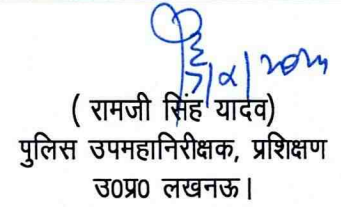 ( रामजी सिंह यादव)
पुलिस उपमहानिरीक्षक, प्रशिक्षण
उ0प्र0 लखनऊ।